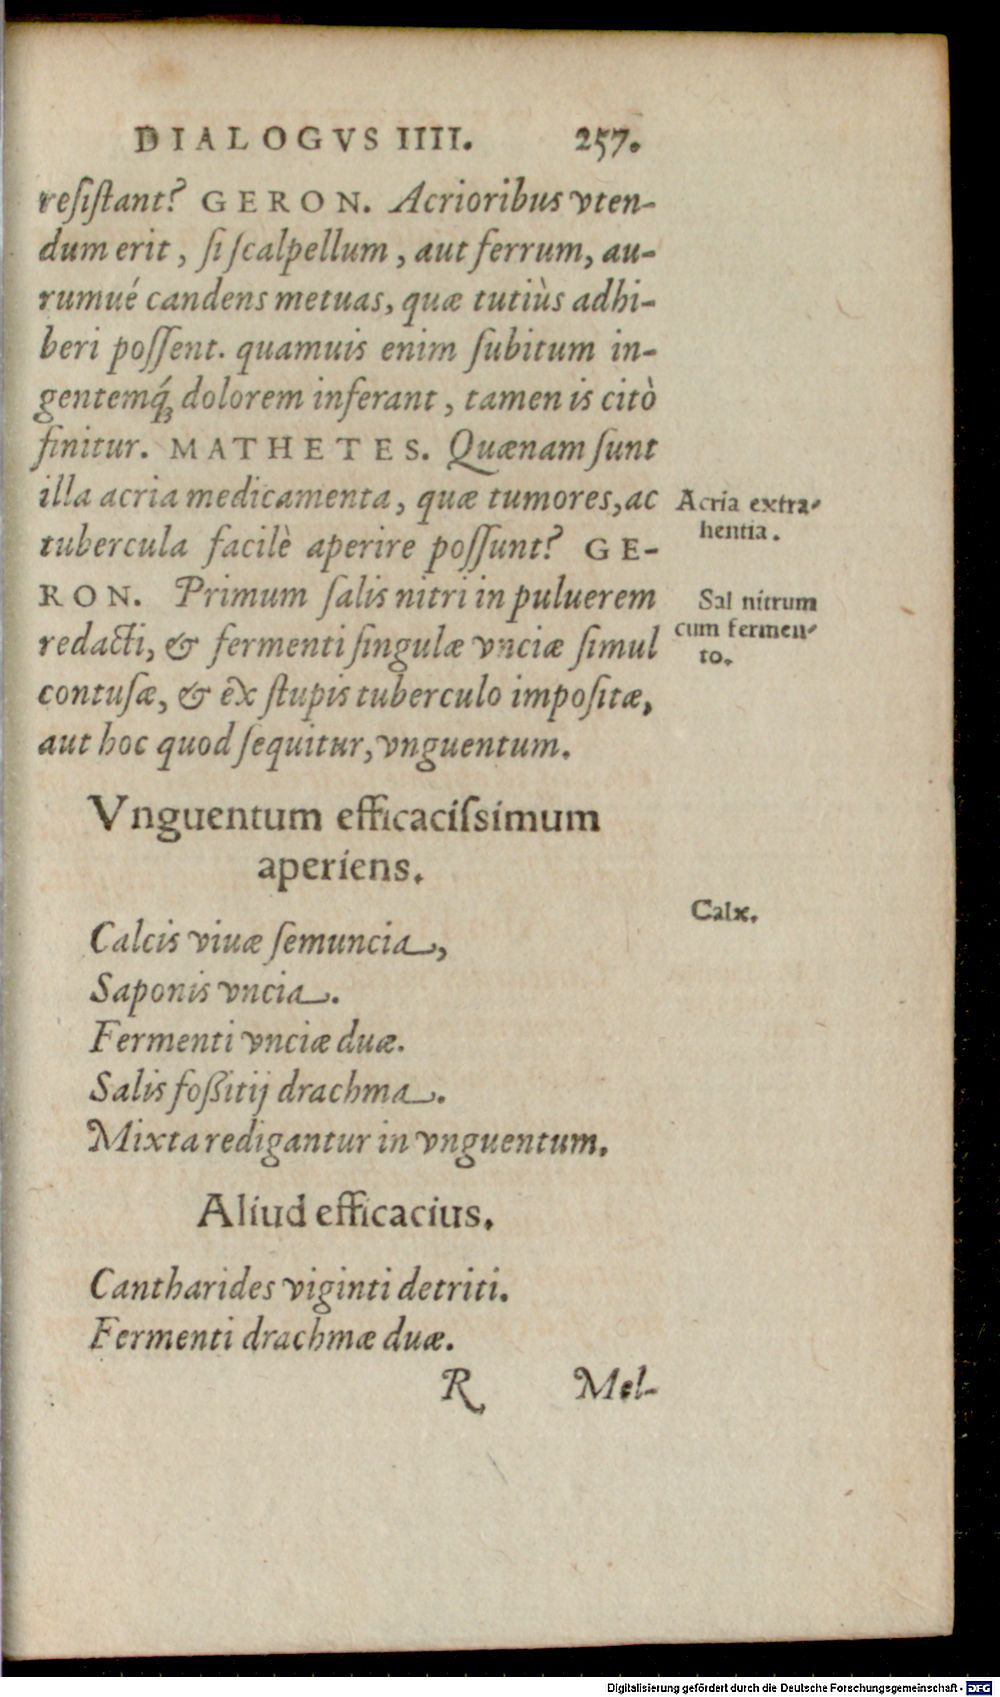 DIALOGVS IIII. 257.
resistant? GERON. Acrioribus vten-
dum erit, si scalpellum, aut ferrum, au-
rumué candens metuas, quæ tutiùs adhi-
beri possent. quamuis enim subitum in-
gentemq́; dolorem inferant, tamen is citò
finitur. MATHETES. Quænam sunt
illa acria medicamenta, quæ tumores, ac
tubercula facilè aperire possunt? GE-
RON. Primum salis nitri in puluerem
redacti, & fermenti singulæ vnciæ simul
contusæ, & ex stupis tuberculo impositæ,
aut hoc quod sequitur, vnguentum.
Acria extra-
hentia.
Sal nitrum
cum fermen-
to.
Vnguentum efficacissimum
aperiens.
Calx.
Calcis viuæ semuncia,
Saponis vncia.
Fermenti vnciæ duæ.
Salis foßitij drachma.
Mixta redigantur in vnguentum.
Aliud efficacius.
Cantharides viginti detriti.
Fermenti drachmæ duæ.
R Mel-
Digitalisierung gefördert durch die Deutsche Forschungsgemeinschaft - DFG